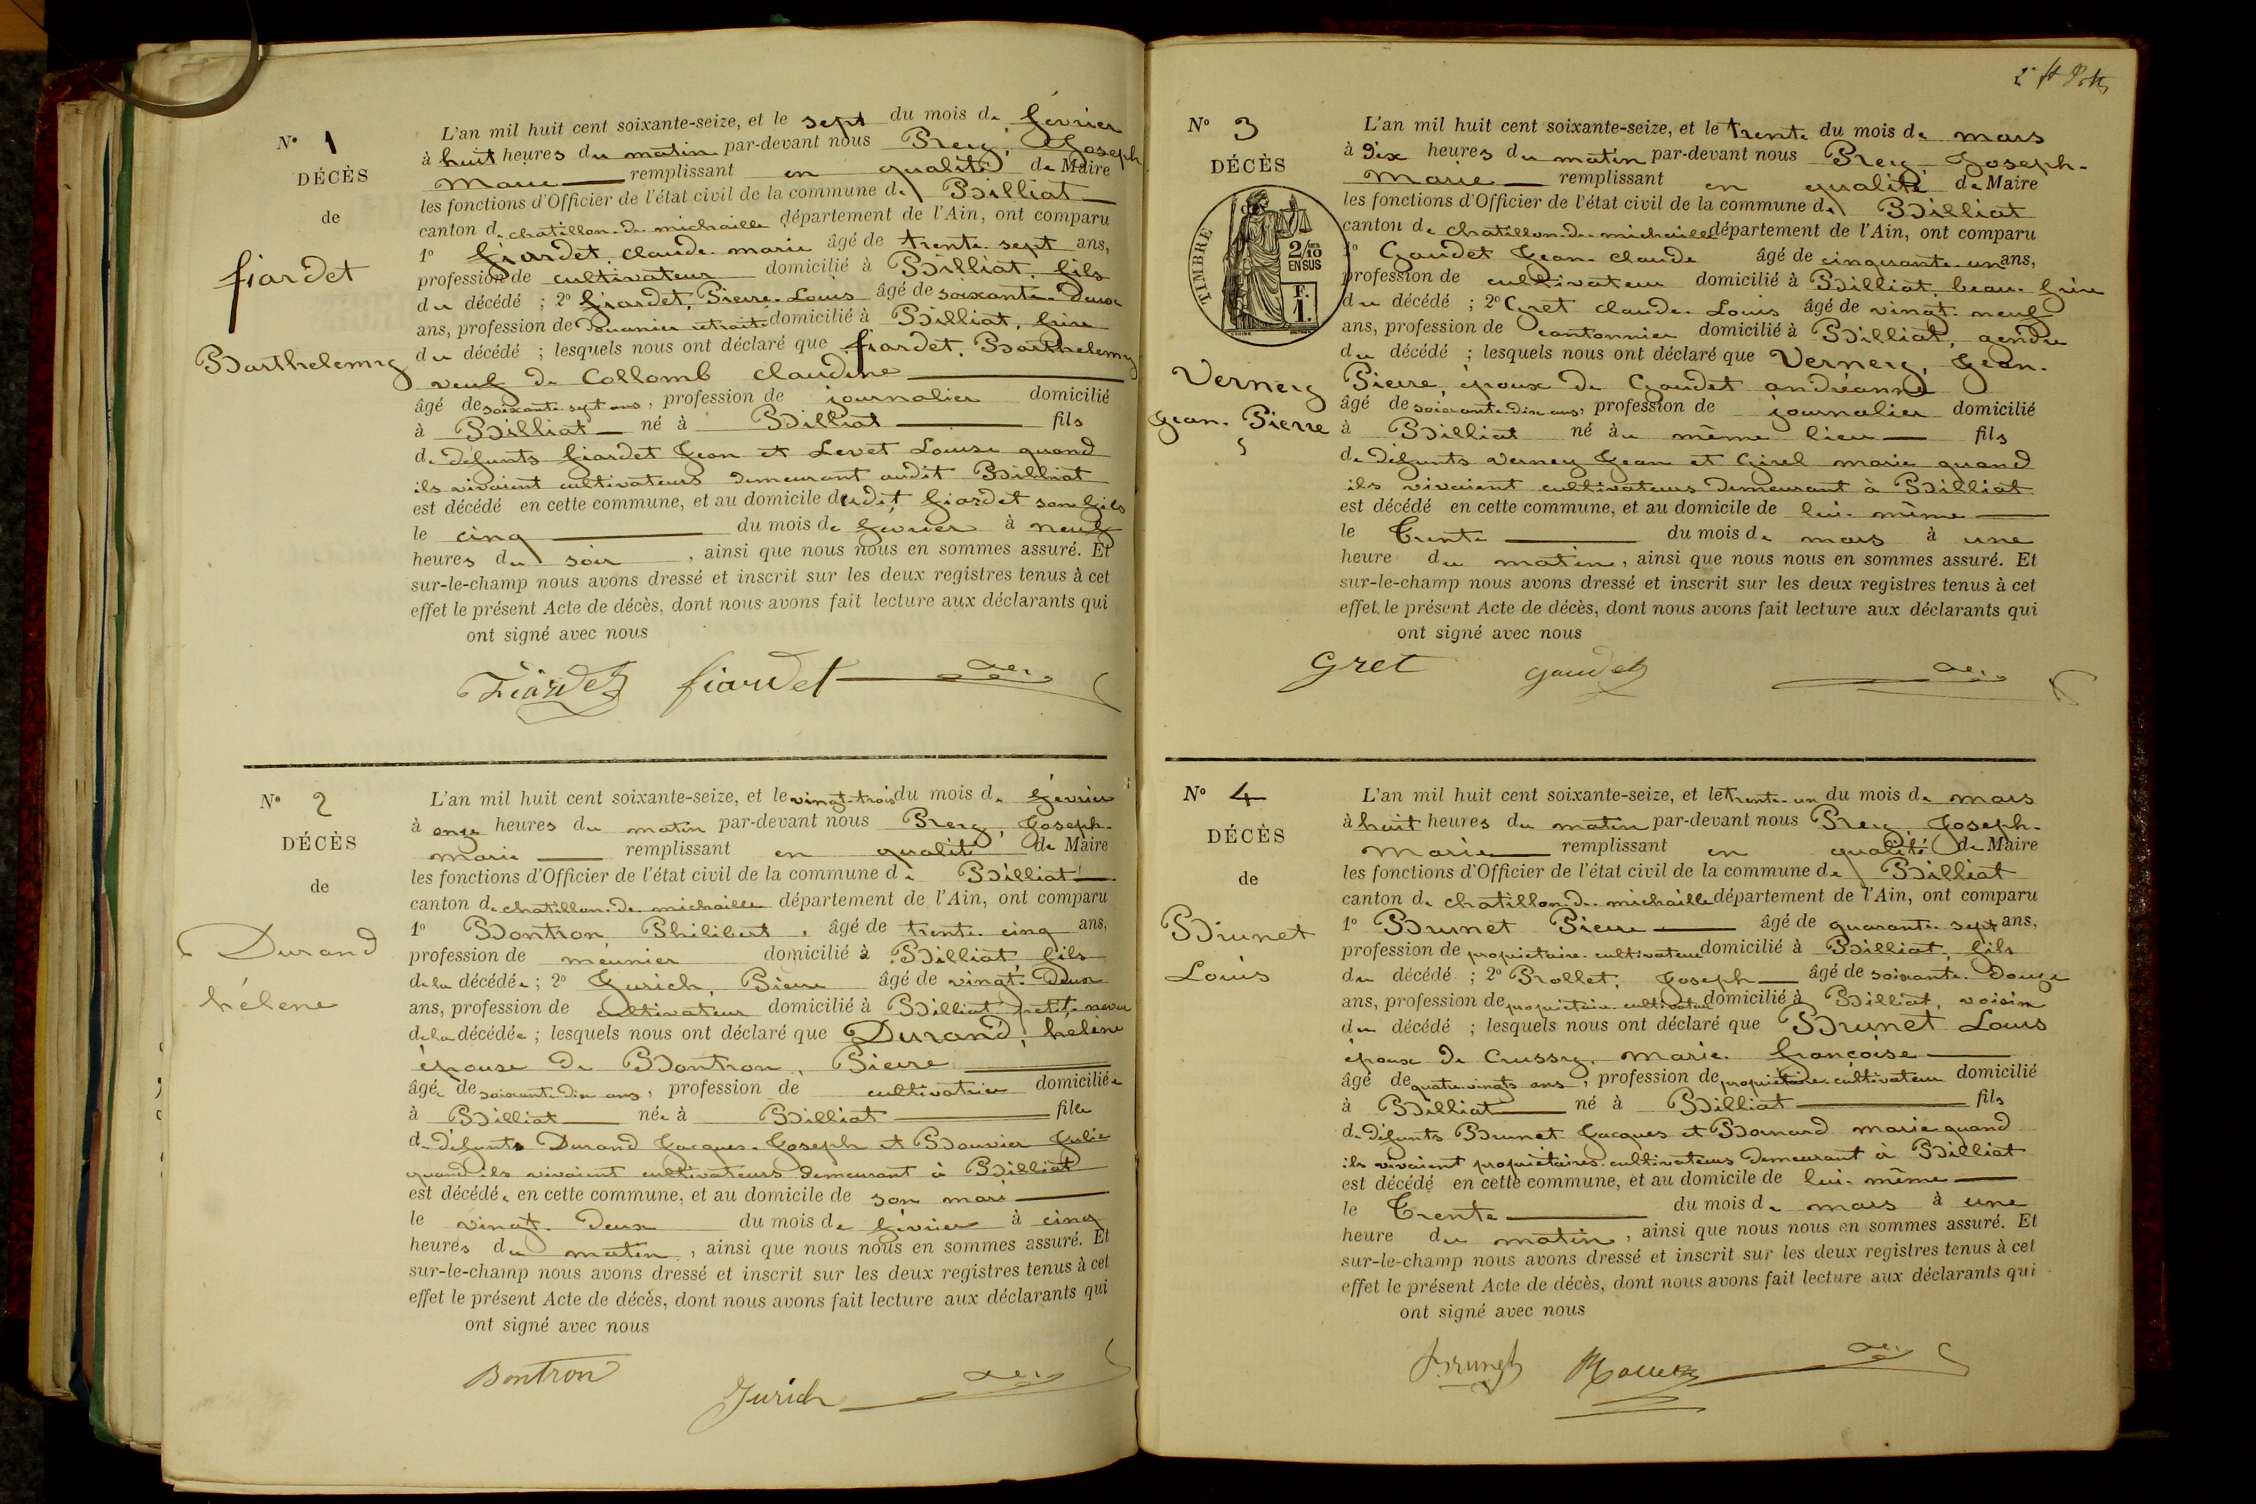 N° 1
DÉCÈS
de
fiardet
Barthelemy
L'an mil huit cent soixante-seize, et le sept du mois de février
à huit heures du matin par-devant nous Prery, Joseph
Marie remplissant en qualité de Maire
les fonctions d'Officier de l'état civil de la commune de Billiat
canton de chatillon-de-michaille département de l'Ain, ont comparu
1° fiardet claude marie âgé de trente-sept ans,
profession de cultivateur domicilié à Billiat, fils
du décédé ; 2° fiardet, Pierre-Louis âgé de soixante-deux
ans, profession de Douanier retraité domicilié à Billiat, frère
du décédé ; lesquels nous ont déclaré que fiardet, Barthelemy
veuf de Collomb claudine
âgé de soixante-sept ans, profession de journalier domicilié
à Billiat né à Billiat fils
de défunts fiardet Jean et Levet Louise quand
ils vivaient cultivateurs demeurant audit Billiat
est décédé en cette commune, et au domicile dudit fiardet son fils
le cinq du mois de février à neuf
heures du soir, ainsi que nous nous en sommes assuré. Et
sur-le-champ nous avons dressé et inscrit sur les deux registres tenus à cet
effet le présent Acte de décès, dont nous avons fait lecture aux déclarants qui
ont signé avec nous
Fiardet fiardet
N° 2
DÉCÈS
de
Durand
hélène
L'an mil huit cent soixante-seize, et le vingt-trois du mois de février
à onze heures du matin par-devant nous Prery, Joseph-
marie remplissant en qualité de Maire
les fonctions d'Officier de l'état civil de la commune de Billiat
canton de chatillon-de-michaille département de l'Ain, ont comparu
1° Bontron Philibert, âgé de trente-cinq ans,
profession de meunier domicilié à Billiat fils
de la décédée ; 2° Jurich, Pierre âgé de vingt-deux
ans, profession de cultivateur domicilié à Billiat petit-neveu
de la décédée ; lesquels nous ont déclaré que Durand, helène
épouse de Bontron, Pierre
âgée de soixante-dix ans, profession de cultivatrice domiciliée
à Billiat née à Billiat fille
de défunts Durand Jacques-Joseph et Bouvier Julie
quand ils vivaient cultivateurs demeurant à Billiat
est décédée en cette commune, et au domicile de son mari
le vingt-deux du mois de février à cinq
heures du matin, ainsi que nous nous en sommes assuré. Et
sur-le-champ nous avons dressé et inscrit sur les deux registres tenus à cet
effet le présent Acte de décès, dont nous avons fait lecture aux déclarants qui
ont signé avec nous
Bontron
Jurich
N° 3
DÉCÈS
TIMBRE
2/10
EN SUS
F.
1.
Verney
Jean-Pierre
L'an mil huit cent soixante-seize, et le trente du mois de mars
à dix heures du matin par-devant nous Prery Joseph-
Marie remplissant en qualité de Maire
les fonctions d'Officier de l'état civil de la commune de Billiat
canton de chatillon-de-michaille département de l'Ain, ont comparu
1° Gaudet Jean-claude âgé de cinquante-un ans,
profession de cultivateur domicilié à Billiat, beau-frère
du décédé ; 2° Gret claude-Louis âgé de vingt-neuf
ans, profession de cantonnier domicilié à Billiat, gendre
du décédé ; lesquels nous ont déclaré que Verney, Jean-
Pierre, époux de Gaudet andréanne
âgé de soixante-dix ans, profession de journalier domicilié
à Billiat né au même lieu fils
de défunts Verney Jean et Girel marie quand
ils vivaient cultivateurs demeurant à Billiat
est décédé en cette commune, et au domicile de lui-même
le Trente du mois de mars à une
heure du matin, ainsi que nous nous en sommes assuré. Et
sur-le-champ nous avons dressé et inscrit sur les deux registres tenus à cet
effet le présent Acte de décès, dont nous avons fait lecture aux déclarants qui
ont signé avec nous
Gret Gaudet
N° 4
DÉCÈS
de
Brunet
Louis
L'an mil huit cent soixante-seize, et le trente-un du mois de mars
à huit heures du matin par-devant nous Prery Joseph-
Marie remplissant en qualité de Maire
les fonctions d'Officier de l'état civil de la commune de Billiat
canton de chatillon-de-michaille département de l'Ain, ont comparu
1° Brunet Pierre âgé de quarante-sept ans,
profession de propriétaire-cultivateur domicilié à Billiat, fils
du décédé ; 2° Prollet, Joseph âgé de soixante-douze
ans, profession de propriétaire-cultivateur domicilié à Billiat, voisin
du décédé ; lesquels nous ont déclaré que Brunet Louis
époux de Crussy, marie-françoise
âgé de quatre-vingts ans, profession de propriétaire-cultivateur domicilié
à Billiat né à Billiat fils
de défunts Brunet Jacques et Bornard marie quand
ils vivaient propriétaires-cultivateurs demeurant à Billiat
est décédé en cette commune, et au domicile de lui-même
le Trente du mois de mars à une
heure du matin, ainsi que nous nous en sommes assuré. Et
sur-le-champ nous avons dressé et inscrit sur les deux registres tenus à cet
effet le présent Acte de décès, dont nous avons fait lecture aux déclarants qui
ont signé avec nous
Brunet